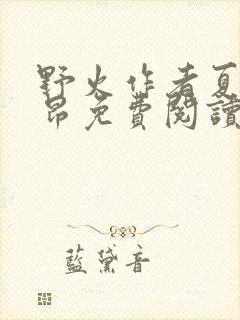 野火作者夏
昂免費閱讀
藍黛音